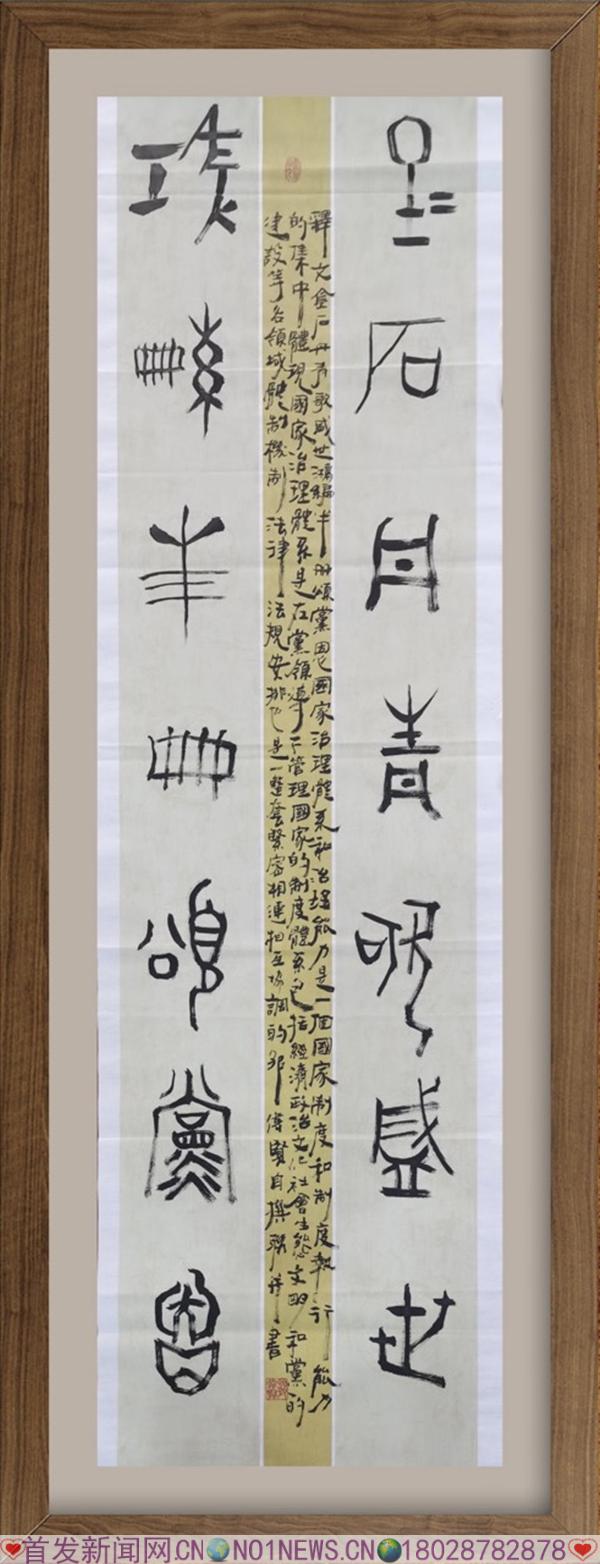 金石丹青歌盛世
釋文金石丹青歌盛世鴻編半冊頌黨恩國家治理體系和治理能力是一個國家制度和制度執行能力
的集中體現國家治理體系是在黨領導下管理國家的制度體系包括經濟政治文化社會生態文明和黨的
建設等各領域體制機制法律法規安排也是一整套緊密相連相互協調的 傅賢自撰聯并書
鴻編半冊頌黨恩
首发新闻网.CN NO1NEWS.CN 18028782878